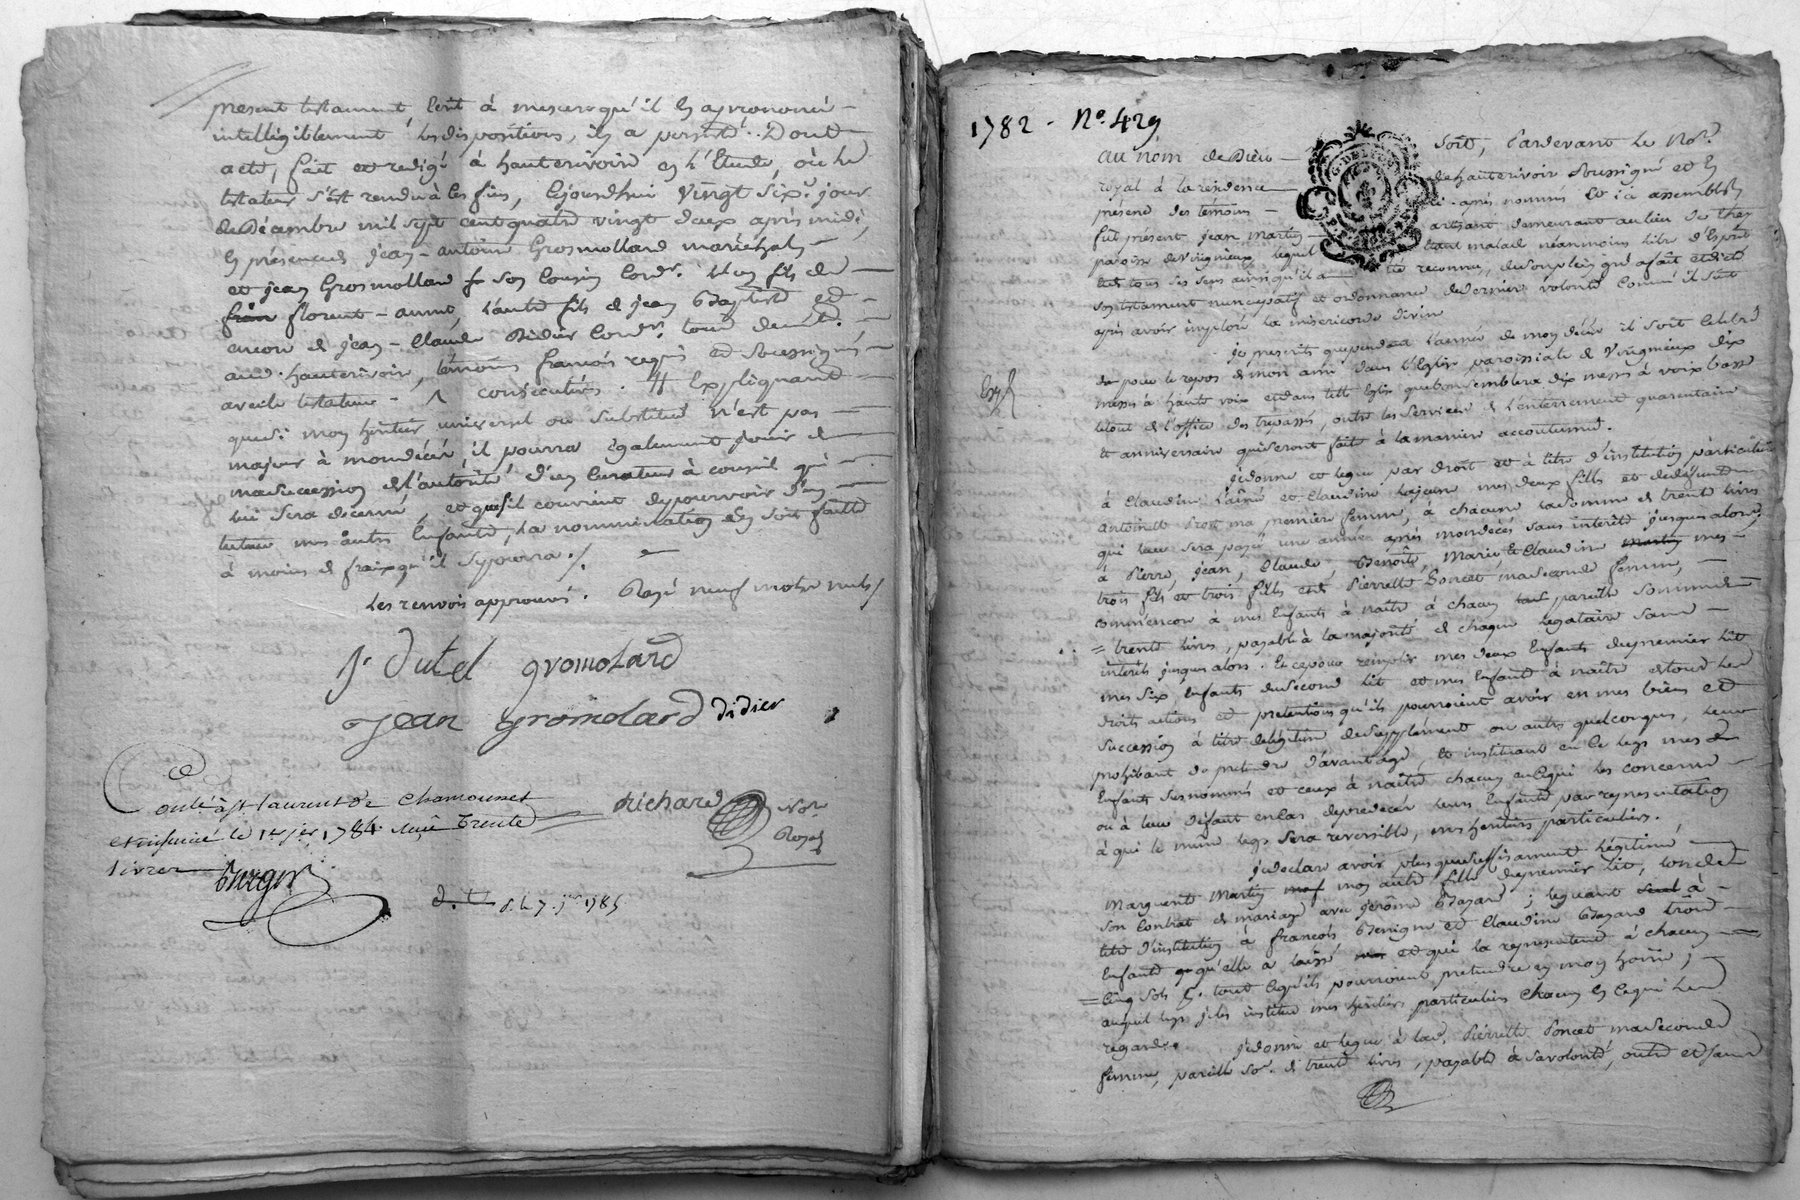 présent testament écrit à mesure qu'il en a prononcé
intelligiblement les dispositions, il y a persisté. Dont
acte, fait et rédigé à hauterivoire en l'Etude, où le
testateur s'est rendu à ces fins, cejourdhui vingt six.e jour
de Décembre mil sept cent quatre vingt deux après midi,
en présence de jean-antoine Grosmollard maréchal
et jean Grosmollard son Cousin Cord.r L'un fils de
florent-aimé, l'autre fils de jean Baptiste et
encore de jean-Claude Didier Cord.r tous demt.
aud. hauterivoire, témoins français requis et Soussignés
avec le testateur - consécutifs. Expliquant
que si mon héritier universel ou substitué n'est pas
majeur à mon décès il pourra également jouir de
ma succession de l'autorité d'un Curateur à conseil qui
lui sera décerné, et que s'il convient de pourvoir d'un
tuteur mes autres Enfants, la nomination en soit faitte
à moins de fraix qu'il se pourra ./.
Les renvois approuvés. Rayé neuf mots nuls/
J. Dutel gromolard
Jean gromolard didier
Conlé à st laurent de Chamousset
et insinué le 14 jer 1784 Reçu trente
livres
Richard Nore
Royal
d. le 7. 1785
1782 - No. 429
Au nom de Dieu Soit, Pardevant le Nore.
royal à la residence de hauterivoire Soussigné et en
présence des témoins ci-après nommés Et ici assemblés
fut présent jean Martin artisant demeurant au lieu de
paroisse de Virigneux lequel étant malade néanmoins libre d'Esprit
et de tous ses sens ainsi qu'il a été reconnu, de son plein gré a fait et dicté
Son testament nuncupatif et ordonnance de dernière volonté Comme il suit
après avoir imploré la misericorde divine
je prescrits que pendant l'année de mon décès il soit Celebré
pour le repos de mon ame dans l'Eglise paroissiale de Virigneux dix
messes à haute voix et dans telle Eglise que bon semblera dix messes à voix basse
le tout de l'office des trépassés, outre les services de l'enterrement quarantaine
et anniversaire qui seront faits à la manière accoutumée.
je donne et legue par droit et à titre d'institution particulière
à Claudine l'aînée et Claudine la jeune mes deux filles et de défunte
Antoinette Prost ma premiere femme, à chacune la somme de trente livres
qui leur sera payée une année après mon décès sans intérêts jusques alors;
à Pierre, jean, Claude, Benoîte, Marie, et Claudine Martin mes
trois fils et trois filles et de Pierrette Poncet ma seconde femme,
comme encore à mes Enfants à naître à chacun pareille somme de
= trente livres, payable à la majorité de chaque légataire sans
intérêts jusques alors. Et ce pour remplir mes deux Enfants du premier lit
mes six Enfants du Second lit et mes Enfants à naître de tous les
droits actions et prétentions qu'ils pourroient avoir en mes biens et
succession à titre de légitime de supplément ou autres quelconques, leur
prohibant de prétendre d'avantage, et instituant en ce legs mes d.
Enfants susnommés et ceux à naître chacun en ce qui les concerne
ou à leur défaut en cas de prédécès leurs Enfants par représentation
à qui le même legs sera reversible, mes héritiers particuliers.
je declare avoir plus que suffisament légitimé
Marguerite Martin mon autre fille du premier lit, lors de
Son Contrat de mariage avec jerôme Bazard; léguant à
titre d'institution à françois Benigne et Claudine Bazard trois
Enfants qu'elle a laissé et qui la representent à chacun
= Cinq Sols pr. tout ce qu'ils pourroient prétendre en mon hoirie;
auquel legs je les institue mes héritiers particuliers Chacun en ce qui les
regarde. je donne et legue à lad. Pierrette Poncet ma seconde
femme, pareille so.e de trente livres, payable à sa volonté, outre et sans